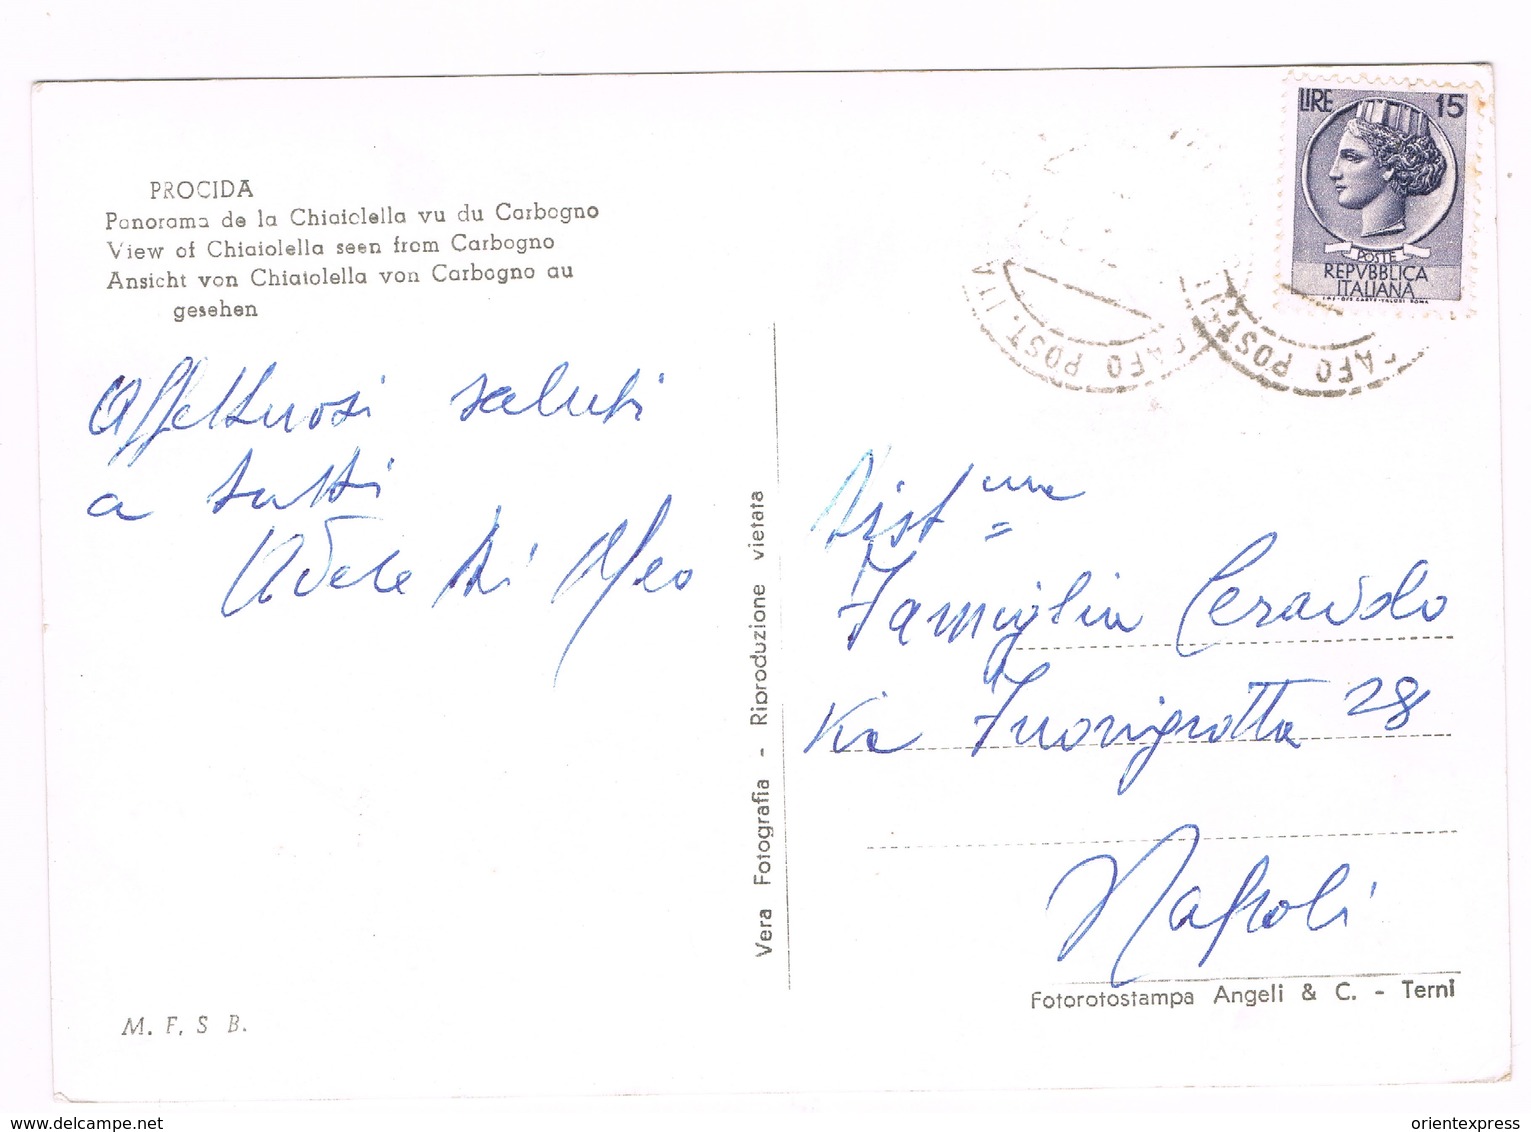 PROCIDA
Panorama de la Chiaiclella vu du Carbogno
View of Chiaiolella seen from Carbogno
Ansicht von Chiaiolella von Carbogno au
gesehen
Affettuosi saluti
a tutti
Adele Di Meo
M. F. S B.
Vera Fotografia - Riproduzione vietata
LIRE 15
POSTE
REPVBBLICA
ITALIANA
POST. ITA
AFO POST. IT
Dist me
Famiglia Ceravolo
Via Fuorigrotta 28
Napoli
Fotorotostampa Angeli & C. - Terni
www.delcampe.net
orientexpress